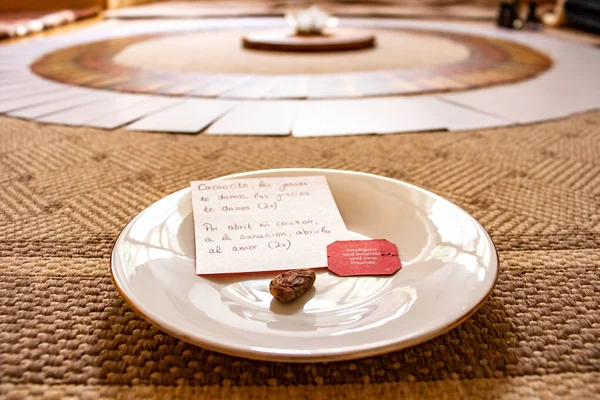 Cacaocito, las gracias
te damos, las gracias
te damos (2x)
Por abrir mi corazon,
a la sanacion, abrirlo
al amor (2x)
Intelligenz
und Intuition
sind zwei
Freunde